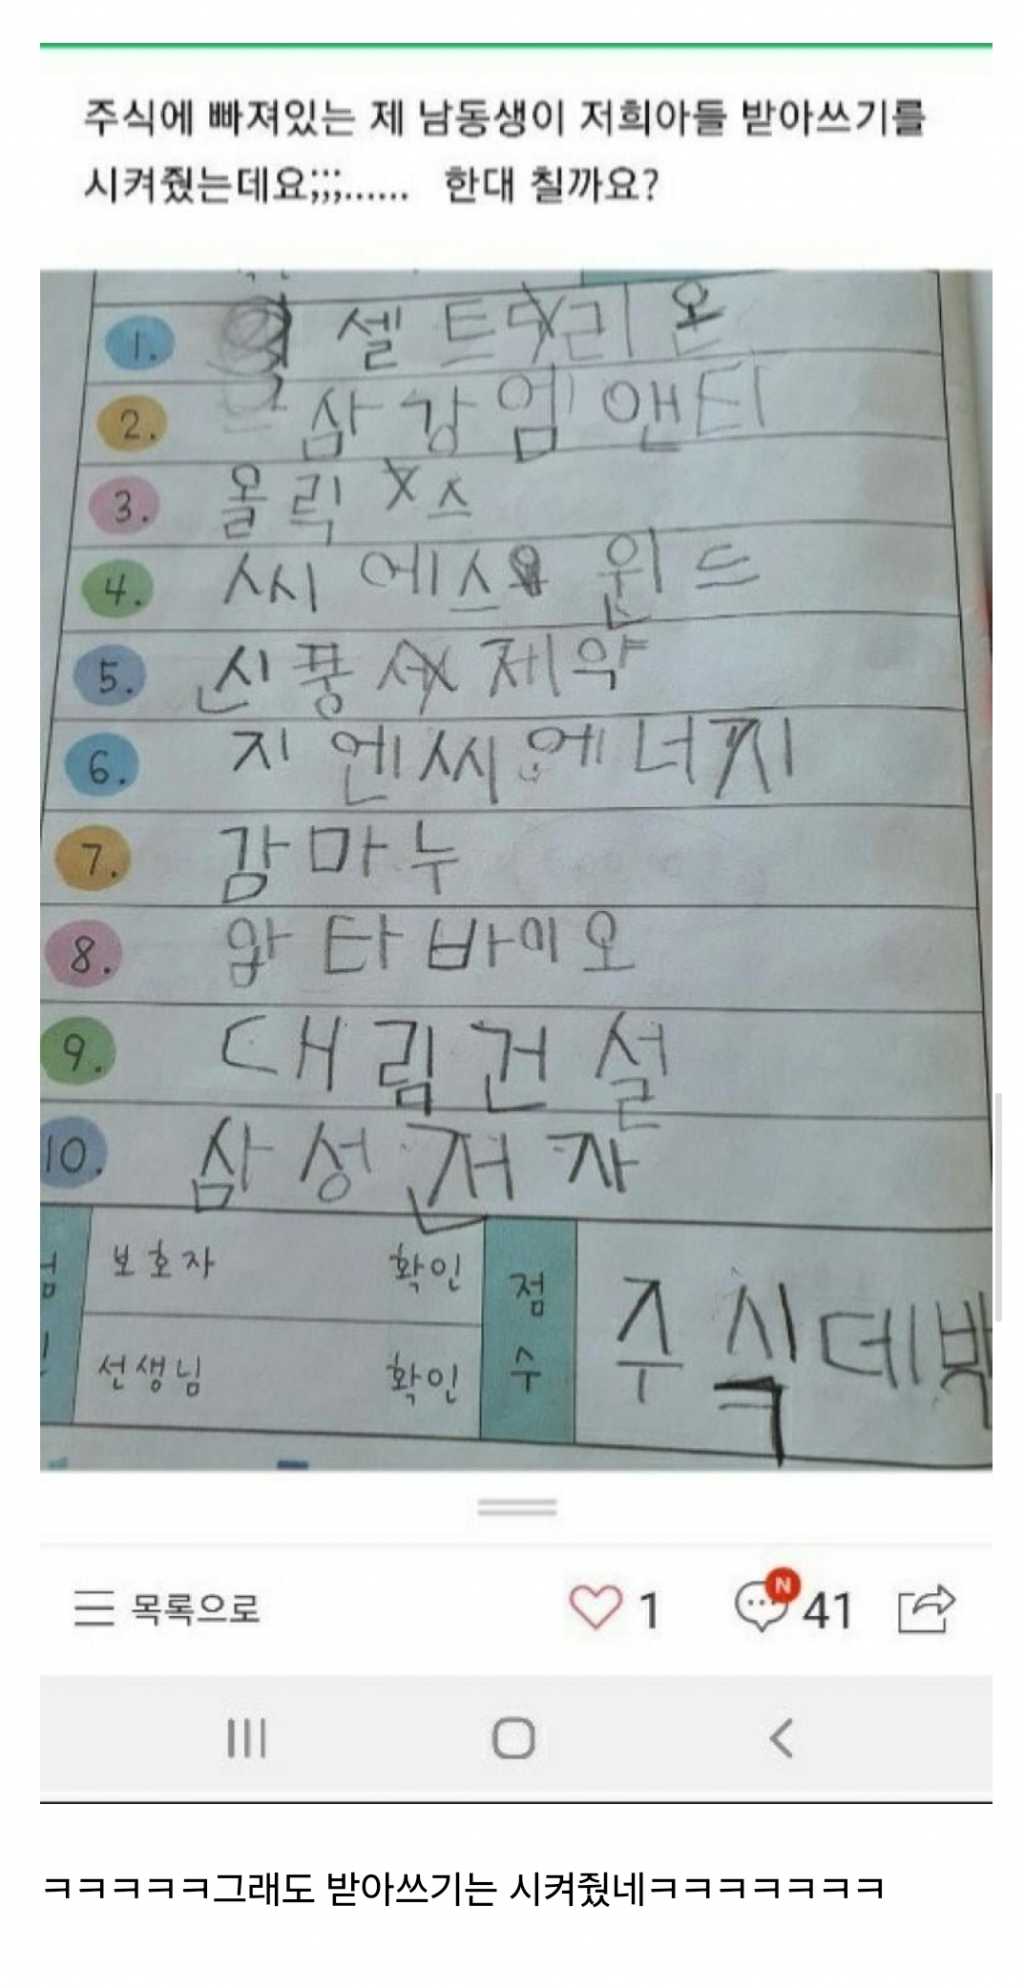 주식에 빠져있는 제 남동생이 저희아들 받아쓰기를
시켜줬는데요;;;...... 한대 칠까요?
1. 셀트리온
2. 삼강엠앤티
3. 올릭스
4. 씨에스윈드
5. 신풍제약
6. 지엔씨에너지
7. 감마누
8. 압타바이오
9. 대림건설
10. 삼성전자
보호자 확인
점수
주식데박
선생님 확인
목록으로 1 N 41
ㅋㅋㅋㅋㅋ그래도 받아쓰기는 시켜줬네ㅋㅋㅋㅋㅋㅋㅋ